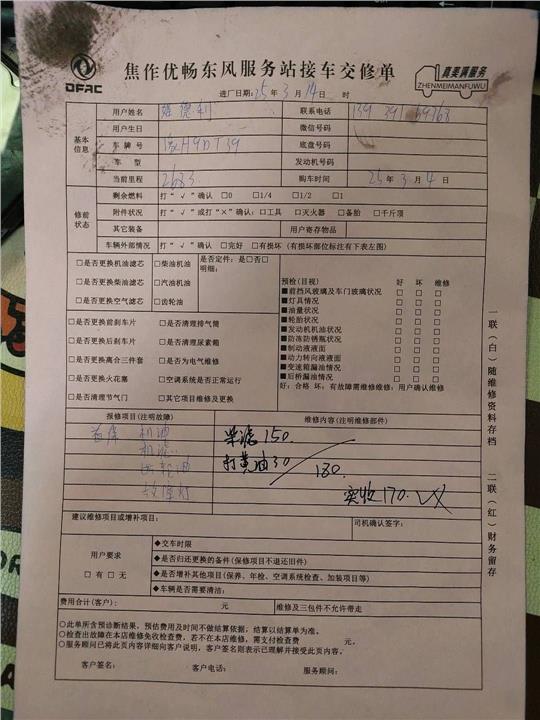 DFAC
焦作优畅东风服务站接车交修单
真美满服务
ZHENMEIMANFUWU
进厂日期: 25年 3 月 14日 时
用户姓名 德利 联系电话
用户生日 微信号码
基本信息 车牌号 豫H9DT39 底盘号码
车型 发动机号码
当前里程 2683 购车时间 25 年 3 月 4 日
修前状态 剩余燃料 打“√”确认 □0 □1/4 □1/2 □1
附件状况 打“√”或打“×”确认: □工具 □灭火器 □备胎 □千斤顶
其它装备 用户寄存物品
车辆外部情况 打“√”确认 □完好 □有损坏 (有损坏部位标注有下表左图)
□是否更换机油滤芯 □柴油机油 是否定件: 是□否□
明细:
□是否更换柴油滤芯 □汽油机油
□是否更换空气滤芯 □齿轮油
预检(目视) 好 坏 维修
■前挡风玻璃及车门玻璃状况 □ □ □
■灯具情况 □ □ □
■油量状况 □ □ □
■轮胎状况 □ □ □
■发动机机油状况 □ □ □
■防冻防锈瓶状况 □ □ □
■制动液液面 □ □ □
■动力转向液液面 □ □ □
■变速箱漏油情况 □ □ □
■后桥漏油情况 □ □ □
好: 合格 坏: 有故障需维修维修: 用户确认维修
□是否更换前刹车片 □是否清理排气筒
□是否更换后刹车片 □是否清理尿素箱
□是否更换离合三件套 □是否为电气维修
□是否更换火花塞 □空调系统是否正常运行
□是否清理节气门 □其它项目维修及更换
报修项目(注明故障) 维修内容(注明维修部件)
首保 机油 柴滤150.
机滤 打黄油30
齿轮油 180.
故障灯 实收170.
建议维修项目或增补项目: 司机确认签字:
用户要求
□有 □无
◆交车时限
◆是否归还更换的备件(保修项目不退还旧件)
◆是否增补其他项目(保养、年检、空调系统检查、加装项目等)
◆车辆是否需要清洁:
费用合计(客户): 元 维修及三包件不允许带走
○此单所含预诊断结果, 预估费用及时间不做结算依据, 结算以结算单为准。
○检查出故障在本店维修免收检查费, 若不在本店维修, 需支付检查费 元。
○服务顾问已将此页内容详细向客户说明, 客户签名则表示已理解并接受此页内容。
客户签名: 客户电话: 服务顾问:
一联(白)随维修资料存档
二联(红)财务留存